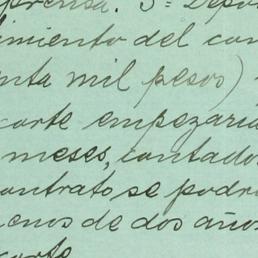 prensa. 3º Depo
imiento del con
nta mil pesos)
corte empezaria
meses, contados
contrato se podra
enos de dos años
corte